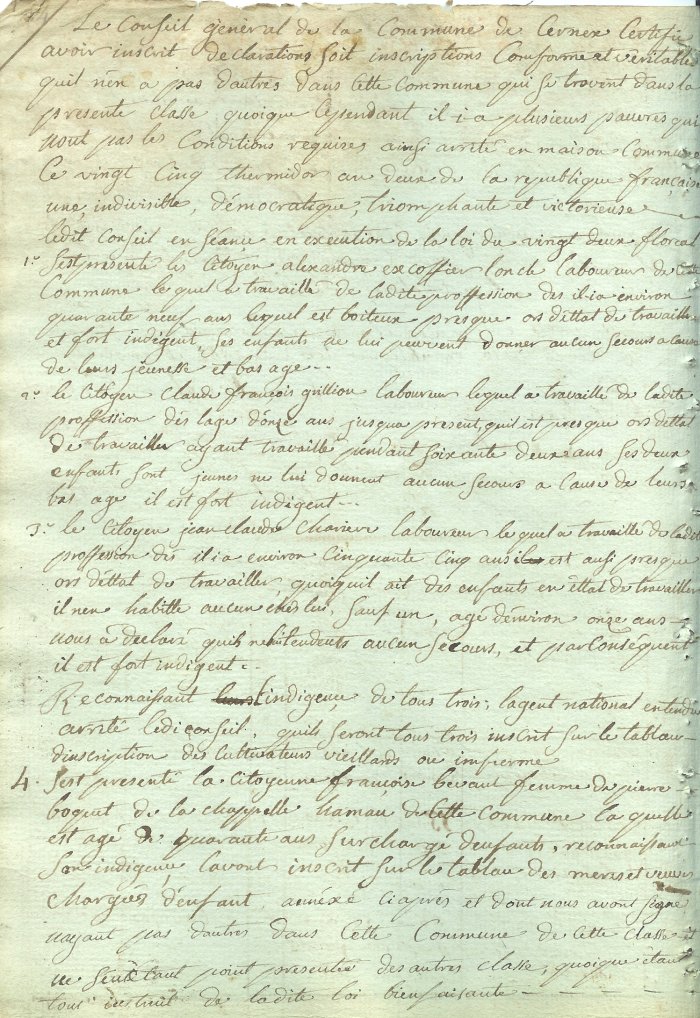 Le Conseil général de la Commune de Cernex Certifie
avoir inscrit declarations soit inscriptions Conforme et veritables
quil n'en a pas dautres dans Cette Commune qui se trovent dans la
presente classe quoique Cependant il i a plusieurs pauvres qui
nont pas les Conditions requises ainsi arreté en maison Commune
Ce vingt Cinq thermidor an deux de la republique française
une, indivisible, démocratique, triomphante et victorieuse
ledit Conseil en séance en execution de la loi du vingt deux floreal
1° S'est presenté le Citoyen alexandre excoffier laboureur de Cette
Commune le quel a travaillé de ladite proffession des il i a environ
quarante neuf ans lequel est boiteux presque ors d'éttat de travailler
et fort indigent, ses enfants ne lui peuvent donner aucun secours a Cause
de leurs jeunesse et bas age ..
2° le Citoyen Claude françois laboureur lequel a travaillé de ladite
proffession dés lage d'onze ans jusqua present, quil est presque ors déttat
de travailler ayant travaillé pendant soixante deux ans ses deux
enfants sont jeunes ne lui donnent aucun secours a Cause de leurs
bas age il est fort indigent ..
3° le Citoyen jean Claude Charierr laboureur le quel a travaillé de ladite
proffession dés il i a environ Cinquante Cinq ans il est ausi presque
ors déttat de travailler, quoiquil ait des enfants en éttat de travailler
il nen habitte aucun chés lui, sauf un, agé d'environ onze ans
nous a declaré quil aucun secours, et par Conséquent
il est fort indigent ..
Reconnaissant l'indigence de tous trois, lagent national entendu
arreté ledi conseil, quils seront tous trois inscrit sur le tableau
dinscription des Cultivateurs vieillards ou infirme
4. S'est presenté la Citoyenne françoise bevant femme de pierre
boquet de la chappelle hamau de Cette Commune la quelle
est agé de quarante ans surchargé denfants, reconnaissant
son indigence, lavons inscrit sur le tablau des meres et veuves
chargées d'enfant, annéxé Ciaprés et dont nous avons signé
nayant pas dautres dans Cette Commune de Cette Classe et
ne point presentée des autres classe, quoique étant
tous de ladite loi bienfaisante